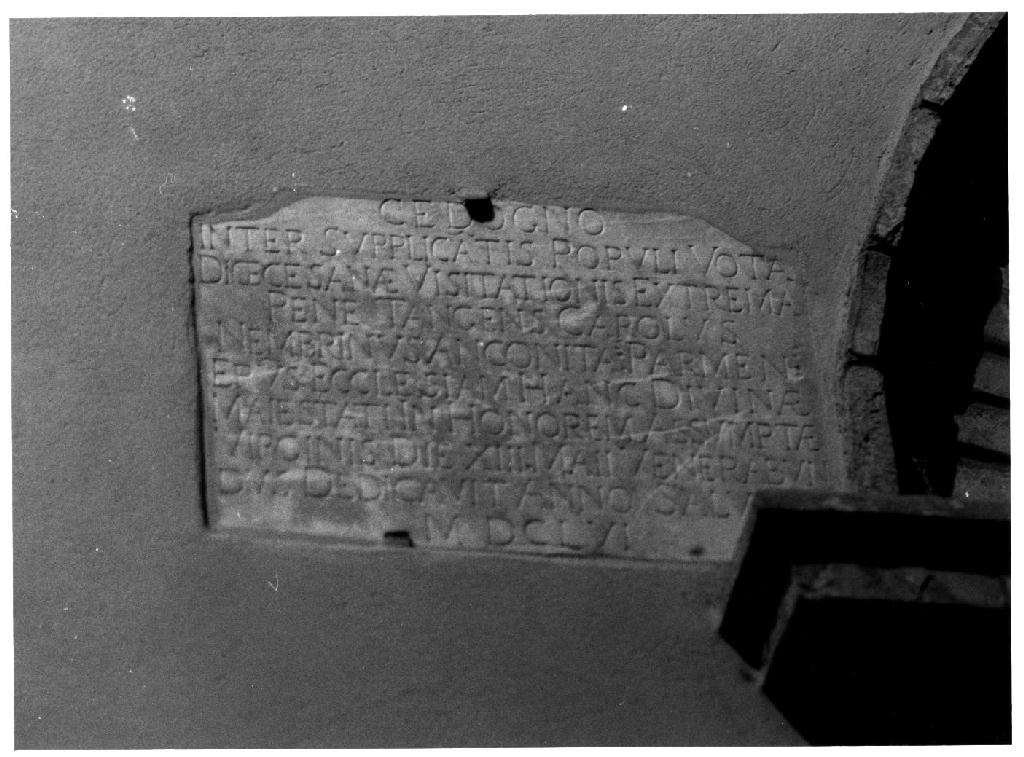 CEDOGNO
INTER SVPPLICATIS POPVLI VOTA
DIOECESANÆ VISITATIONIS EXTREMA
PENE TANGENS CAROLVS
NEMBRINVS ANCONITA PARMENE
EPVS ECCLESIAM HANC DIVINÆ
MAIESTATI IN HONOREM ASSVMPTÆ
VIRGINIS DIE XIIII MAII VENERABVN
DVS DEDICAVIT ANNO
M DCLVI